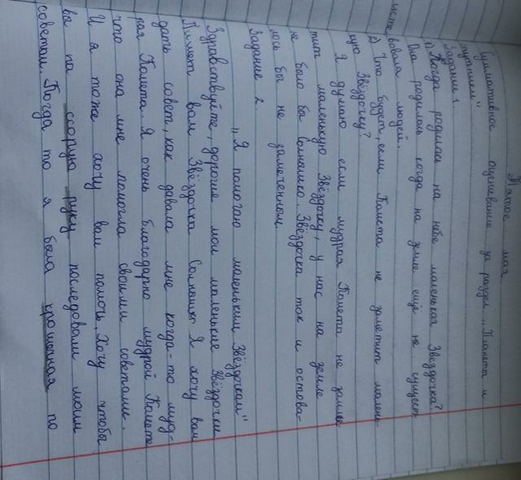 Пятое мая
Суммативное оценивание за раздел „Планеты и
спутники"
Задание 1.
1) Когда родилась на небе маленькая Звёздочка?
Она родилась когда на земле ещё не сущест
вовала людей.
2) Что будет, если Комета не заметит малень
кую Звёздочку?
Я думаю если мудрая Комета не заме
тит маленькую Звёздочку, у нас на земле
не было бы Солнышко. Звёздочка так и остова-
лось бы не замеченной
Задание 2
„Я помогаю маленьким Звёздочкам"
Здравствуйте, дорогие мои маленькие Звёздочки
Пишет вам Звёздочка Солнышко. Я хочу вам
дать совет, как давала мне когда-то муд-
рая Комета. Я очень благодарно мудрой Комете
что она мне помогла своими советами.
И я тоже хочу вам помочь. Хочу чтобы
вы на скорую руку последовали моим
советам. Когда то я была крошечная по